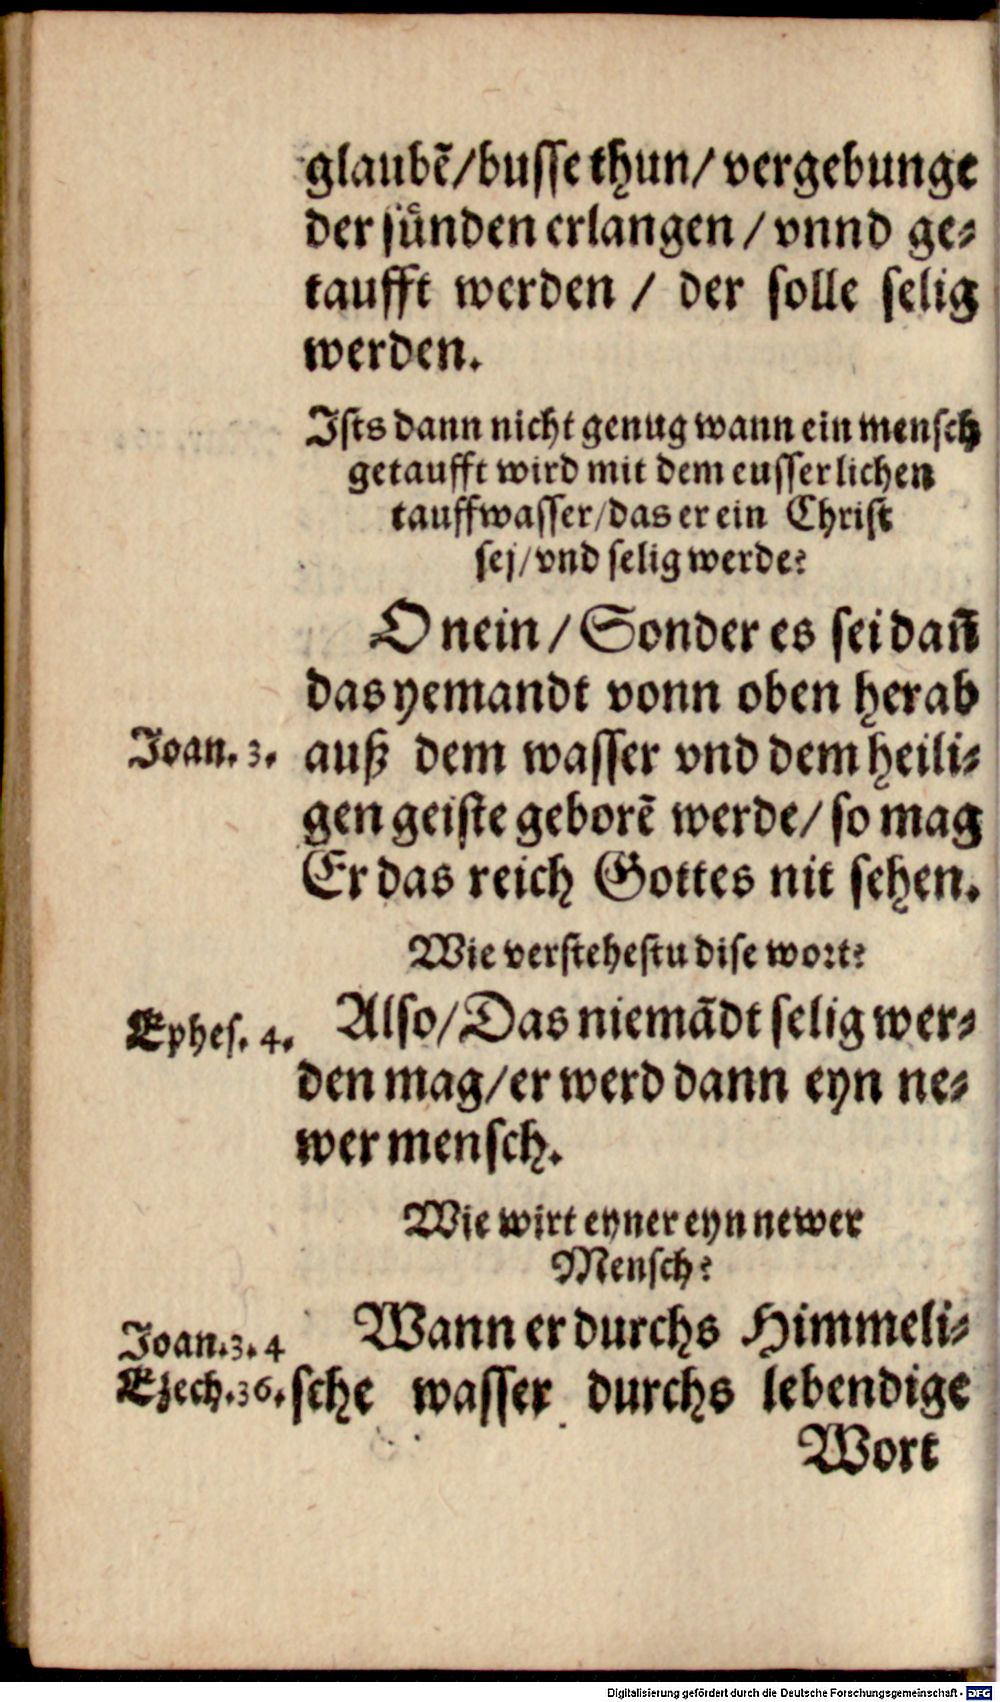 glaubẽ/busse thun/ vergebunge
der sünden erlangen / vnnd ge⸗
taufft werden / der solle selig
werden.
Ists dann nicht genug wann ein mensch
getaufft wird mit dem eusserlichen
tauffwasser/das er ein Christ
sej/vnd selig werde?
O nein / Sonder es sei dañ
das yemandt vonn oben herab
Joan. 3. auß dem wasser vnd dem heili⸗
gen geiste geborẽ werde/ so mag
Er das reich Gottes nit sehen.
Wie verstehestu dise wort?
Ephes. 4. Also/Das niemãdt selig wer⸗
den mag/er werd dann eyn ne⸗
wer mensch.
Wie wirt eyner eyn newer
Mensch?
Joan.3.4 Wann er durchs Himmeli⸗
Ezech.36. sche wasser durchs lebendige
Wort
Digitalisierung gefördert durch die Deutsche Forschungsgemeinschaft - DFG